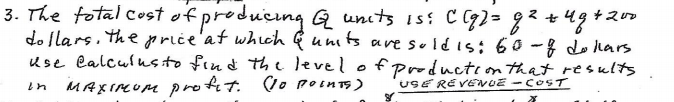 3. The total cost of producing Q units is: C(q)= q² + 4q + 200
dollars. The price at which Q units are sold is: 60 - q dollars
use Calculus to find the level of production that results
in MAXIMUM profit. (10 POINTS) USE REVENUE - COST